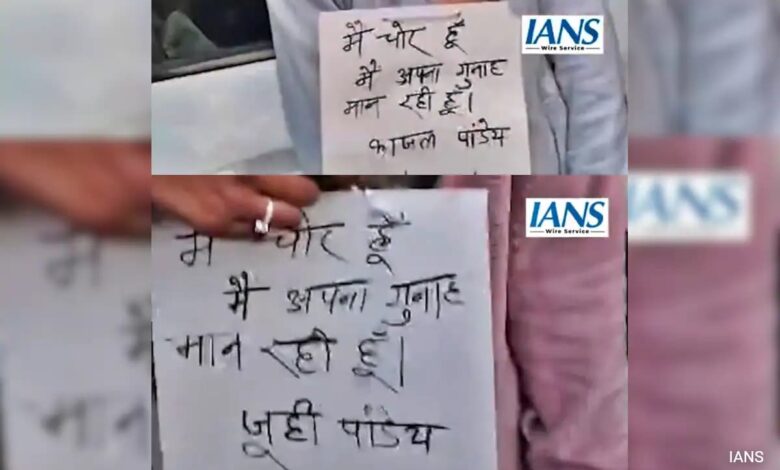 मै चोर हूँ
मै अपना गुनाह
मान रही हूँ।
काजल पांडेय
IANS
Wire Service
मै चोर हूँ
मै अपना गुनाह
मान रही हूँ।
जूही पांडेय
IANS
Wire Service
IANS
IANS